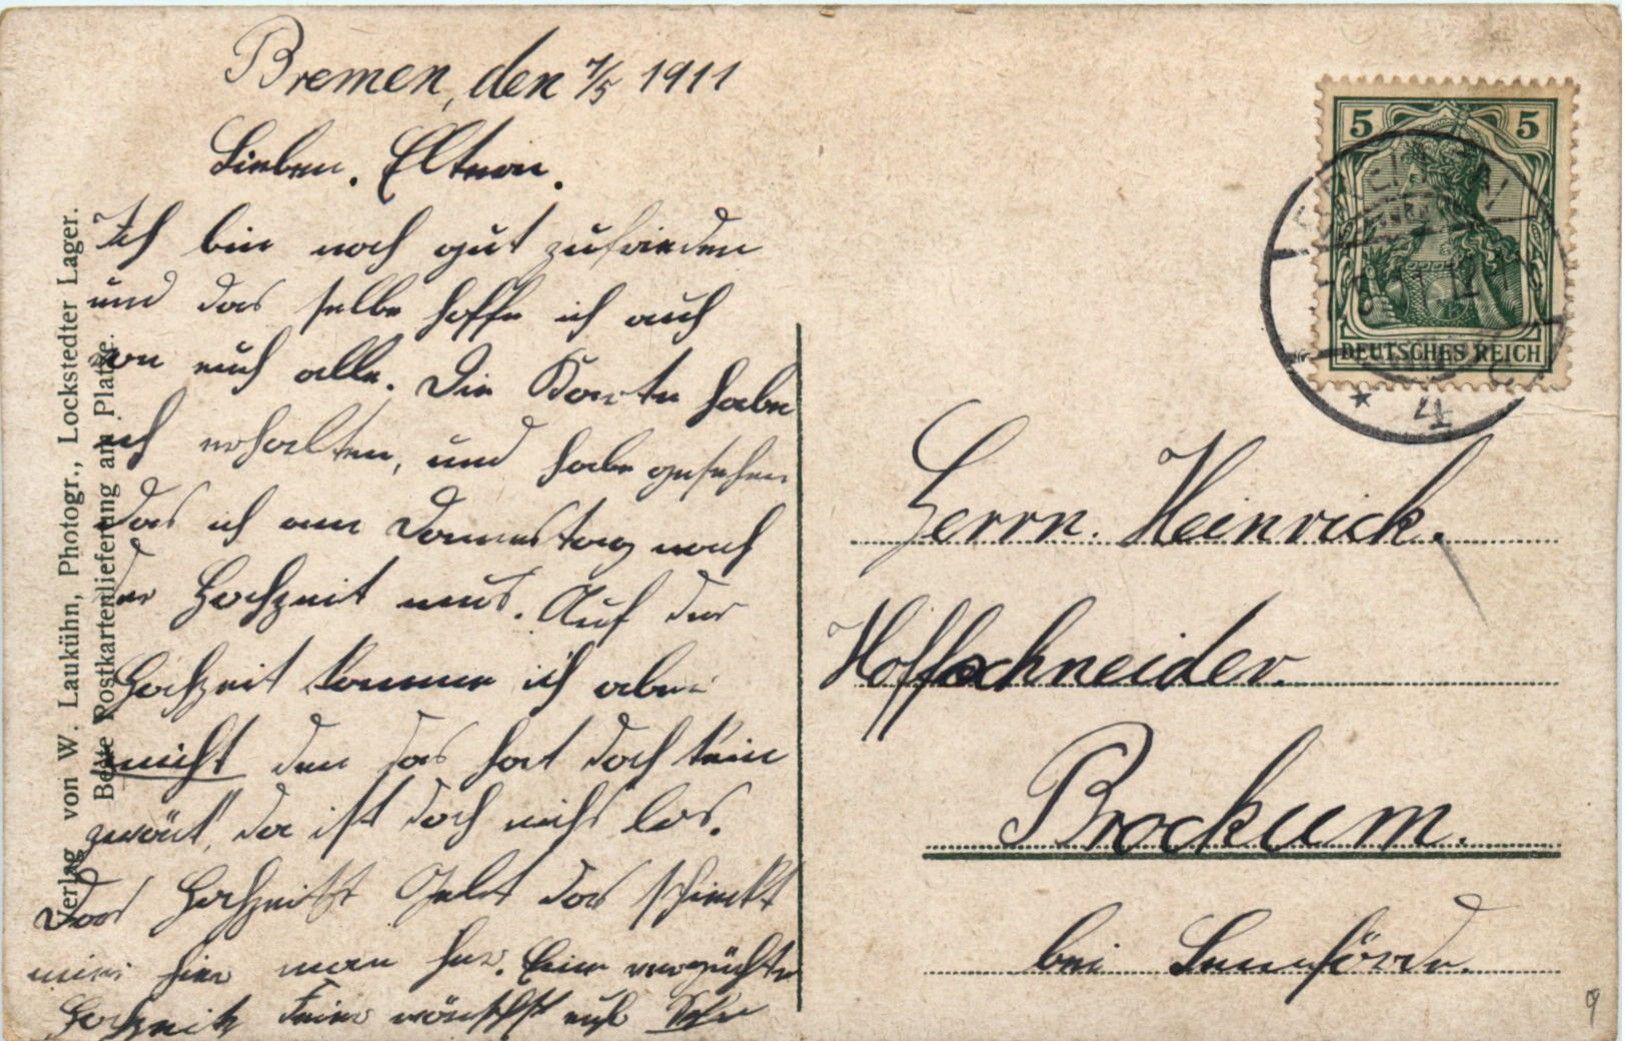 Bremen, den 7/5 1911
Lieben. Eltern.
Ich bin noch gut zufrieden
und das selbe hoffe ich auch
von euch alle. Die Karte habe
ich erhalten, und habe gesehen
das ich am Donnestag nach
der Hochzeit mus. Auf der
Hochzeit komme ich aber
nicht den das hat doch kein
zweck, da ist doch nichs los.
Das Hochzeits Geld das schickt
hier man her. Eine vergnüchte
Hochzeits Feier wünscht euch
Verlag von W. Laukühn, Photogr., Lockstedter Lager.
Beste Postkartenlieferung am Platze.
5 5
DEUTSCHES REICH
* 4
Herrn. Heinrich.
Hoffschneider.
Brockum.
bei Lemförde.